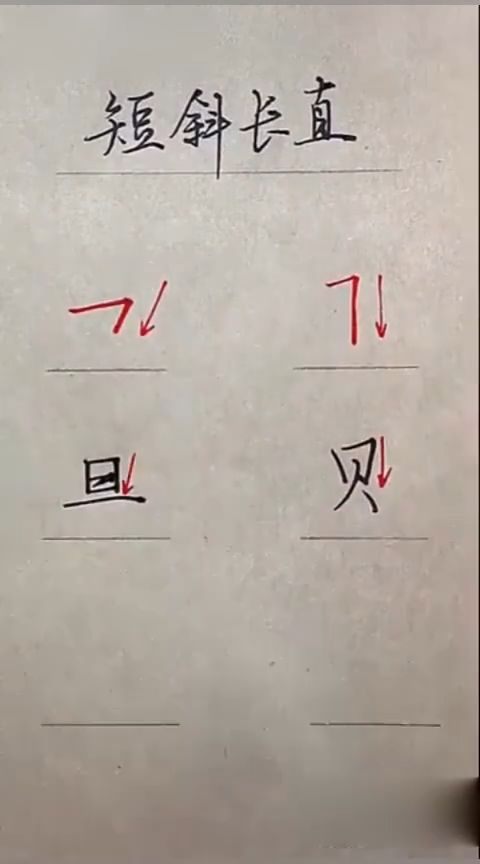 短斜长直
旦 贝